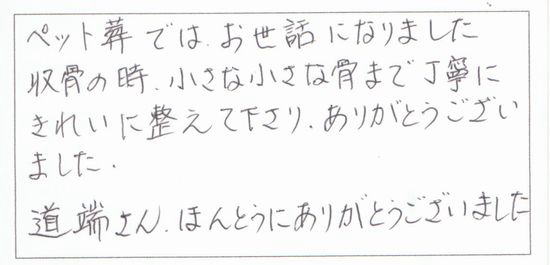 ペット葬では、お世話になりました
収骨の時、小さな小さな骨まで丁寧に
きれいに整えて下さり、ありがとうござい
ました.
道端さん、ほんとうにありがとうございました